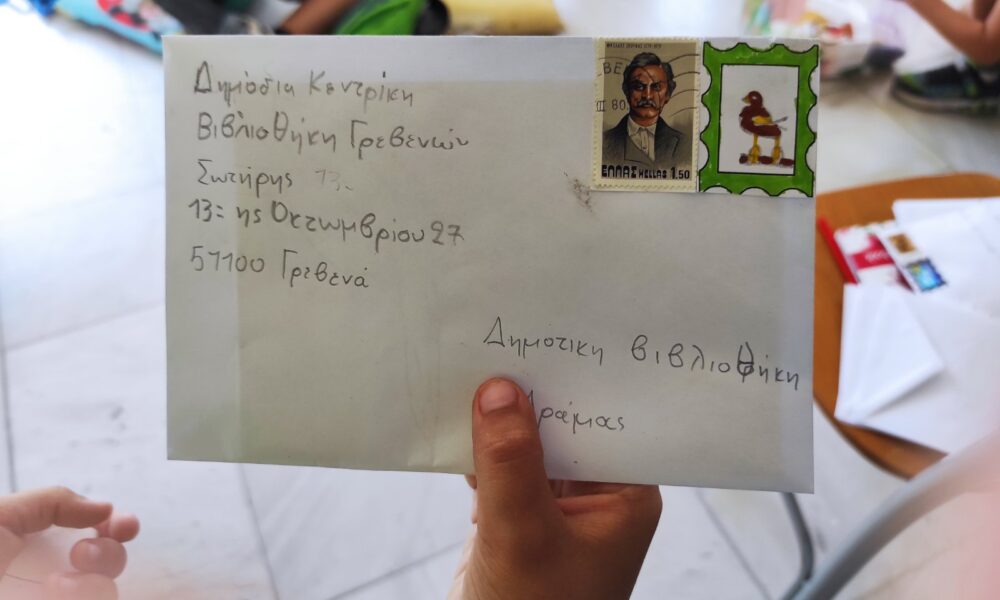 Δημόσια Κεντρίκη
Βιβλιοθήκη Γρεβενών
Σωτήρης 13-
13= ης Οκτωμβρίου 27
51100 Γρεβενά
ΒΕ
III 80
ΕΛΛΑΣ HELLAS 1.50
Δημοτικη βιβλιοθήκη
Δράμας